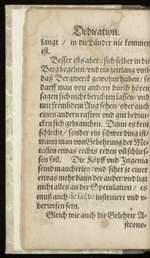 Dedication.
langt / in die Länder nie kommen
ist.
Besser ists aber / sich selber in die
Berg begeben / und ein zeitlang auff
daß Bergwerck gewohnet haben / so
darff man von andern durch hören
sagen sich nicht bereden lassen / und
mit frembdem Aug sehen / oder auch
eines andern rasten und am bedun-
cken sich gebrauchen. Dann es kein
schlecht / sonder ein schwer ding ist /
wann man von Gebehrung der Me-
tallen etwas rechts reden und schlies-
sen soll. Die Köpff und Ingenia
seind mancherley: und sihet je einer
etwas mehr dann der ander und ligt
nicht alles an der Speculation / es
muß auch de facto instruiert und un-
derwisen sein.
Gleich wie auch die Gelehrte A-
strono-